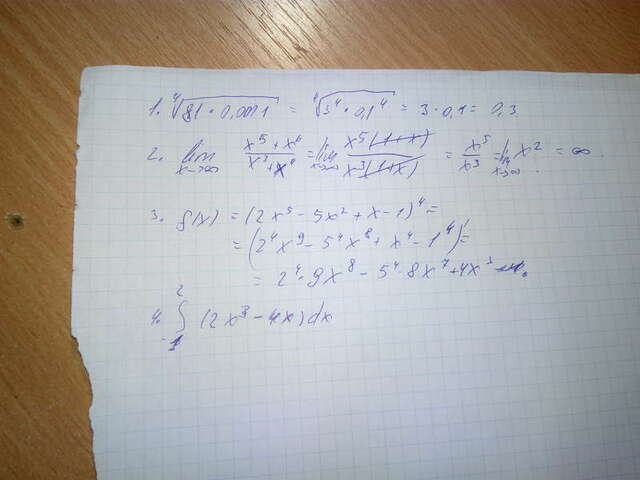 1. ⁴√81·0,0001 = ⁴√3⁴·0,1⁴ = 3·0,1 = 0,3
2. lim x→∞ (x⁵+x⁶)/(x³+x⁴) = lim x→∞ x⁵(1+x)/x³(1+x) = x⁵/x³ = lim x→∞ x² = ∞
3. f(x) = (2x⁵ - 5x² + x - 1)⁴ =
= (2⁴x⁹ - 5⁴x⁸ + x⁴ - 1⁴)' =
= 2⁴·9x⁸ - 5⁴·8x⁷ + 4x³
4. ∫₋₁² (2x³ - 4x)dx